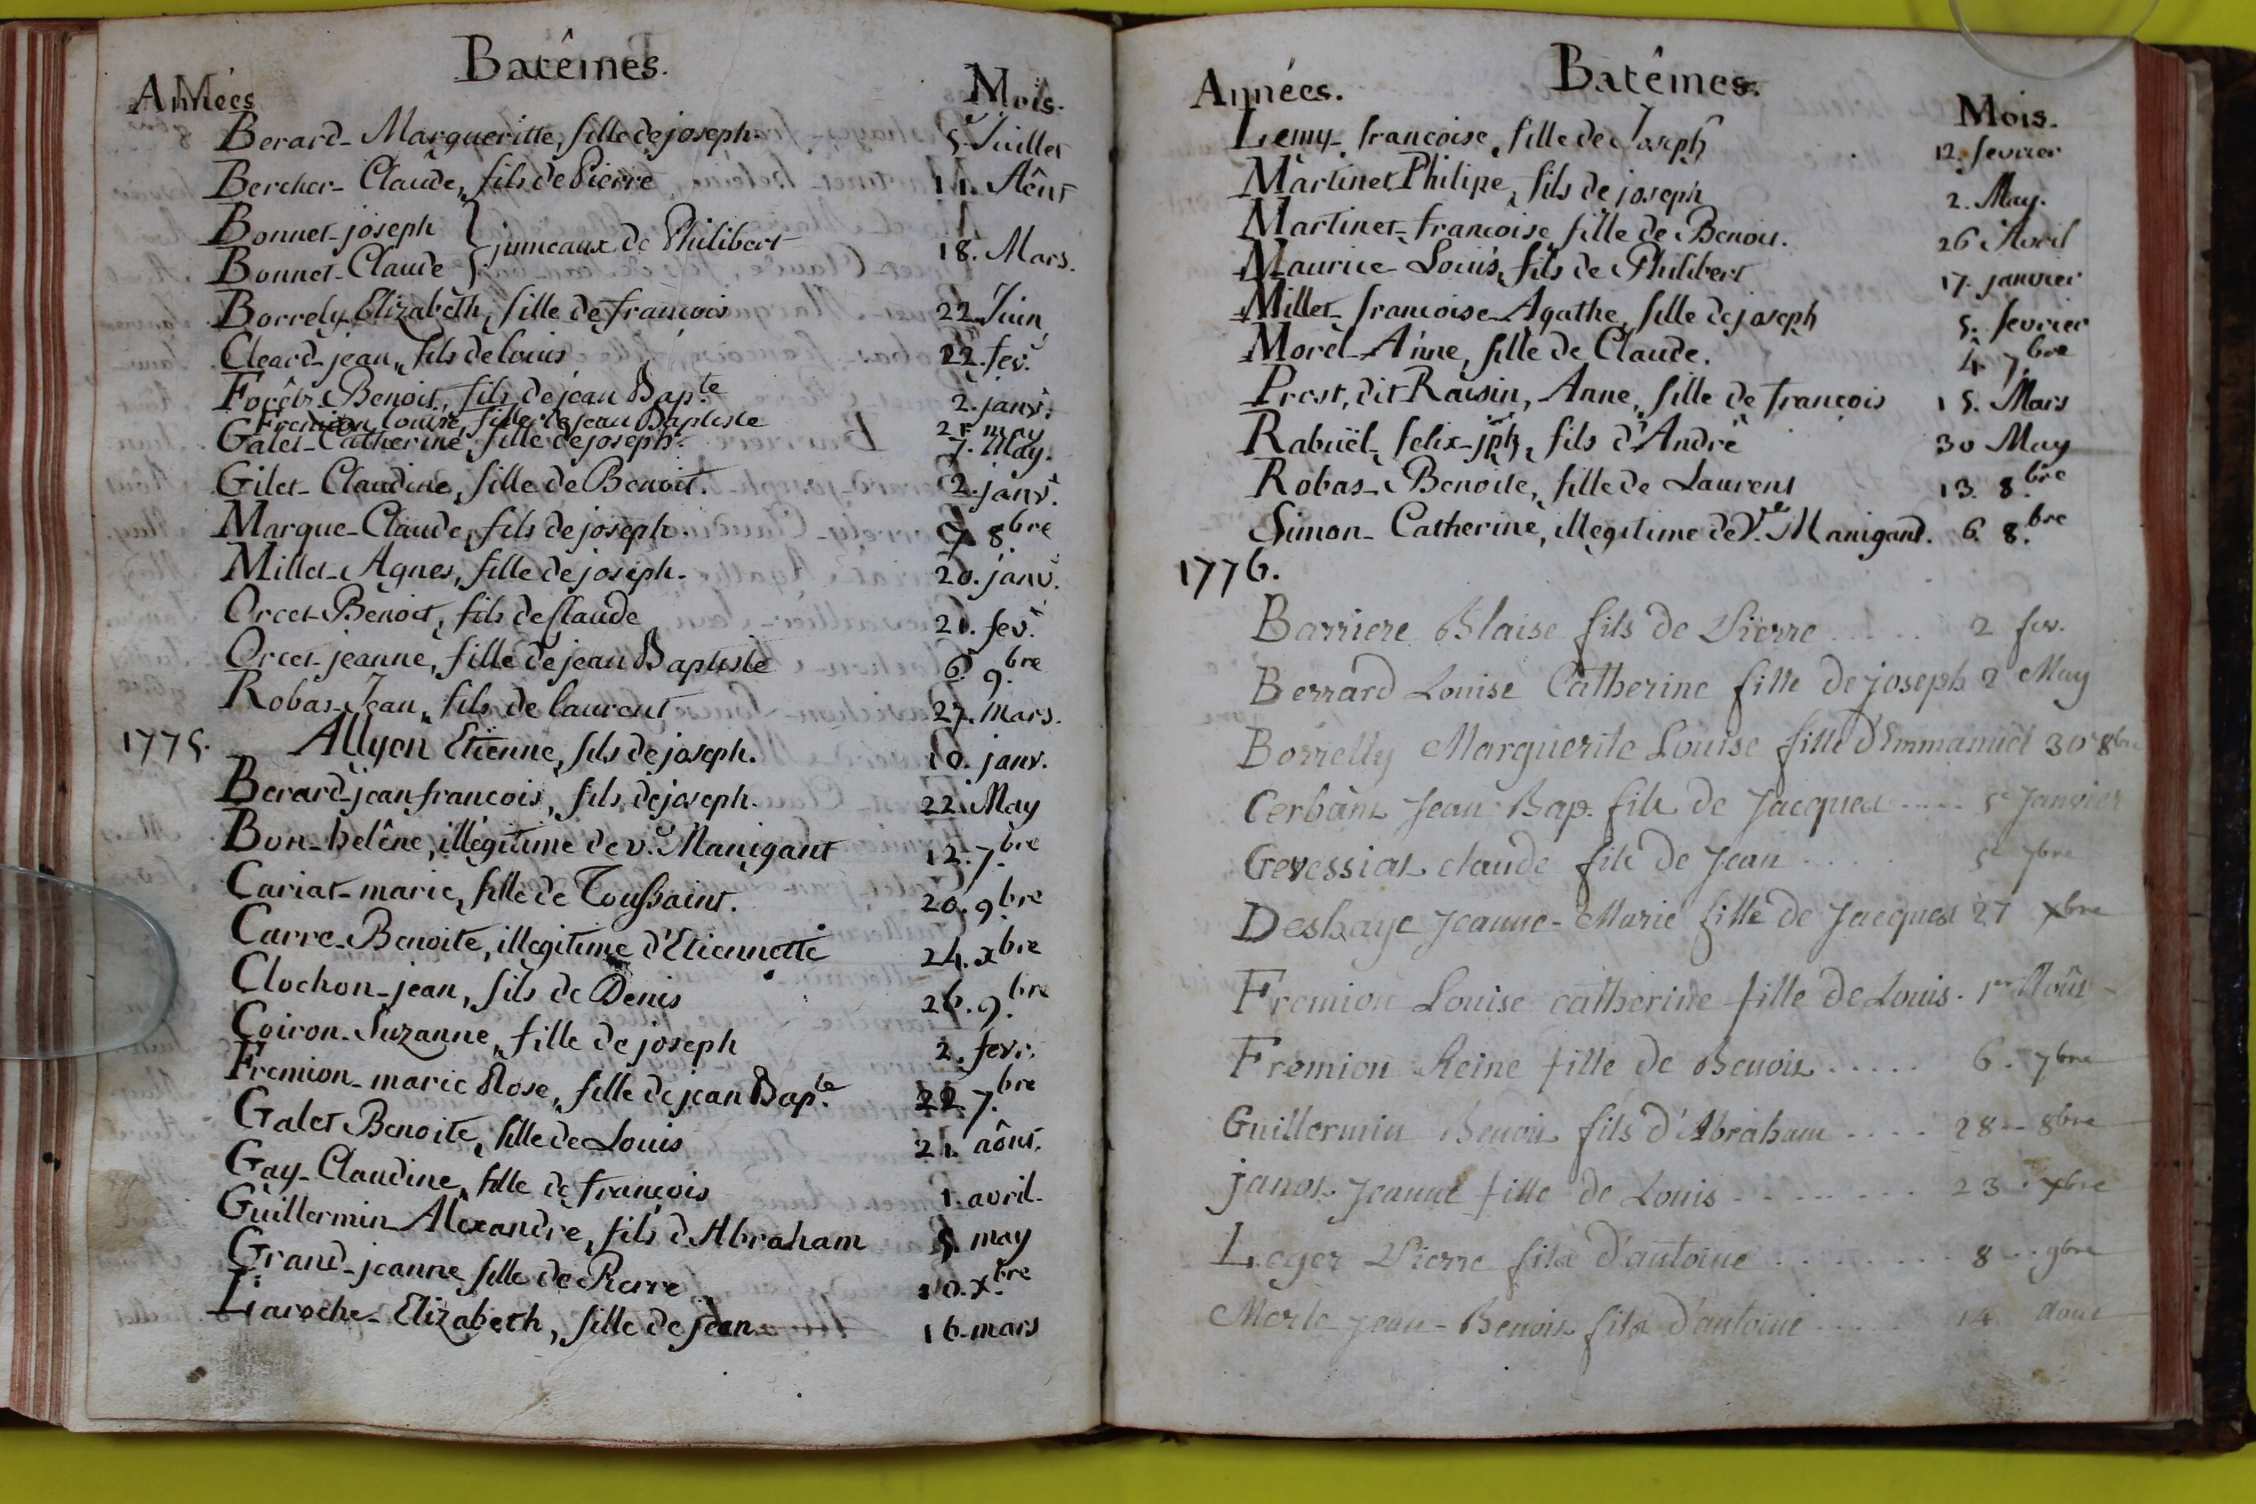 Batêmes.
Années Mois.
Berard- Margueritte, fille de joseph. 5. Juillet
Bercher- Claude, fils de Pierre 11. Aêut
Bonnet- joseph
jumeaux de Philibert 18. Mars.
Bonnet- Claude
Borrely Elizabeth, fille de francois 22. Juin
Cleard- jean, fils de louis 22. fev.
Forêt- Benoit, fils de jean Bap.te 2. janv.
Fremion louise, fille de jean Baptiste 21 may
Galet- Catherine, fille de joseph. 7. May.
Gilet- Claudine, fille de Benoit. 2. janv.
Marque- Claude, fils de joseph. 9. 8bre
Millet- Agnes, fille de joseph. 20. janv.
Orcet- Benoit, fils de Claude 21. fev.
Orcet- jeanne, fille de jean Baptiste 6. 9.bre
Robas- Jean, fils de laurent 27. Mars.
1775. Allyon Etienne, fils de joseph. 10. janv.
Berard- jean francois, fils de joseph. 22. May
Bon- helêne, illégitime de v.e Manigant 12. 7.bre
Cariat- marie, fille de Toussaint. 20. 9.bre
Carre- Benoite, illegitime d'Etiennette 24. xbre
Clochon- jean, fils de Denis 26. 9.bre
Coiron- Suzanne, fille de joseph 2. fevr.
Fremion- marie Rose, fille de jean Bap.te 22. 7.bre
Galet Benoite, fille de Louis 21. aôut.
Gay- Claudine, fille de françois 1. avril.
Guillermin Alexandre, fils d'Abraham 5. may
Grand- jeanne fille de Pierre 10. x.bre
Laroche- Elizabeth, fille de jean 16. mars
Batêmes.
Années. Mois.
Lemy- francoise, fille de Joseph 12. fevrier
Martinet Philipe, fils de joseph 2. May.
Martinet- francoise fille de Benoit. 26 Avril
Maurice- Louis, fils de Philibert 17. janvier
Millet- francoise- Agathe, fille de joseph 5. fevrier
Morel- Anne, fille de Claude. 4. 7.bre
Prost, dit Raisin, Anne, fille de françois 15. Mars
Rabuël- felix- jph, fils d'André 30 May
Robas- Benoite, fille de Laurent 13. 8.bre
Simon- Catherine, illegitime de V.e Manigand. 6. 8.bre
1776.
Barriere Blaise fils de Pierre ..... 2 fev.
Berrard Louise Catherine fille de joseph 2 May
Borrelly Marguerite Louise fille d'Emmanuel 30 8bre
Jean Bap. fils de Jacques .... 5 Janvier
claude fils de Jean ..... 5 7bre
Deshaye Jeanne- Marie fille de Jacques 27 xbre
Fremion Louise catherine fille de Louis. 1er Aôut
Fremion Reine fille de Benoit ..... 6. 7bre
Guillermin Benoit fils d'Abraham .... 28 .. 8bre
janot Jeanne fille de Louis ........ 23 . xbre
Leger Pierre fils d'antoine ........ 8 .. 9bre
Merle jean- Benoit fils d'antoine ..... 14 Aout